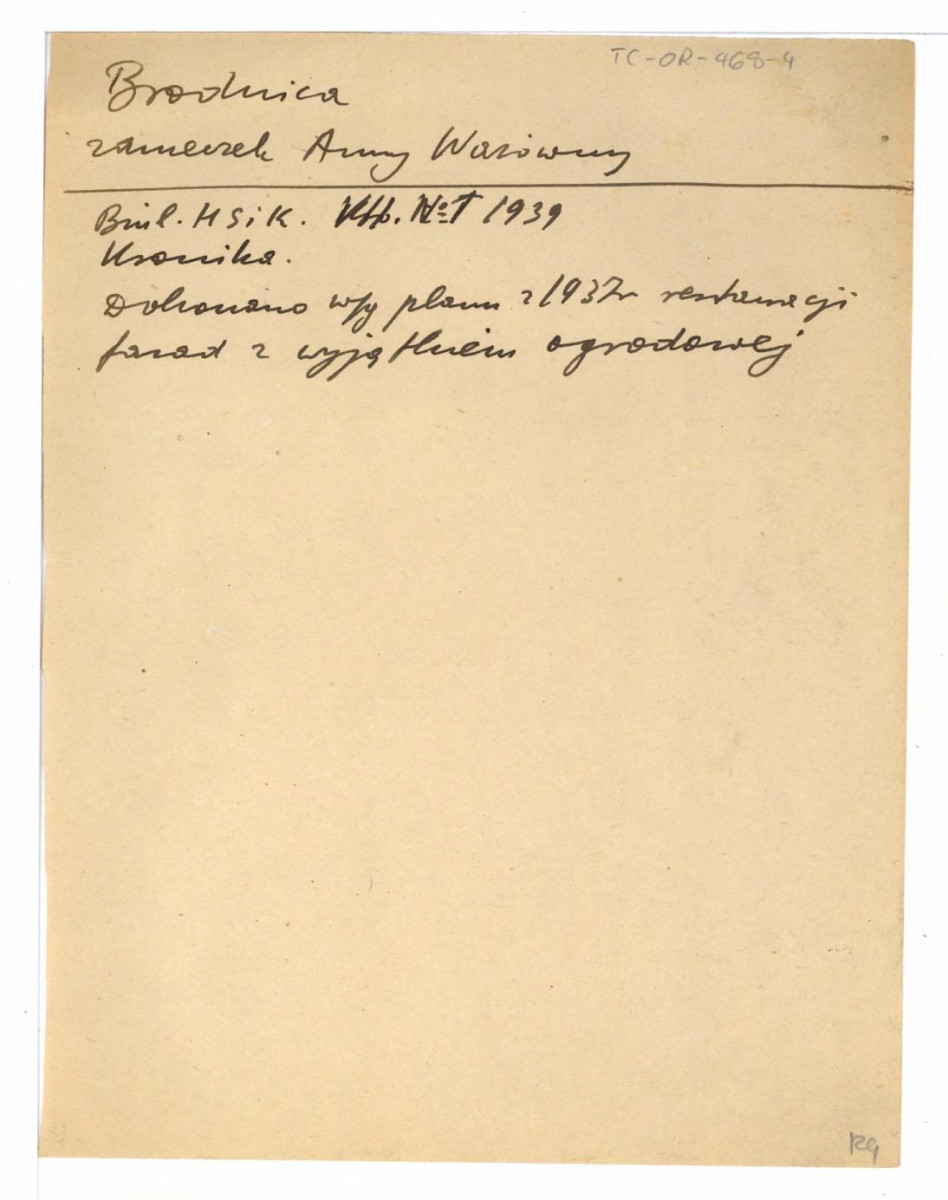 TC-OR-468-4
Brodnica
zameczek Anny Wazówny
Biul. HSiK. No 1 1939
Kronika.
Dokonano wg planu z 1937r restauracji
fasad z wyjątkiem ogrodowej